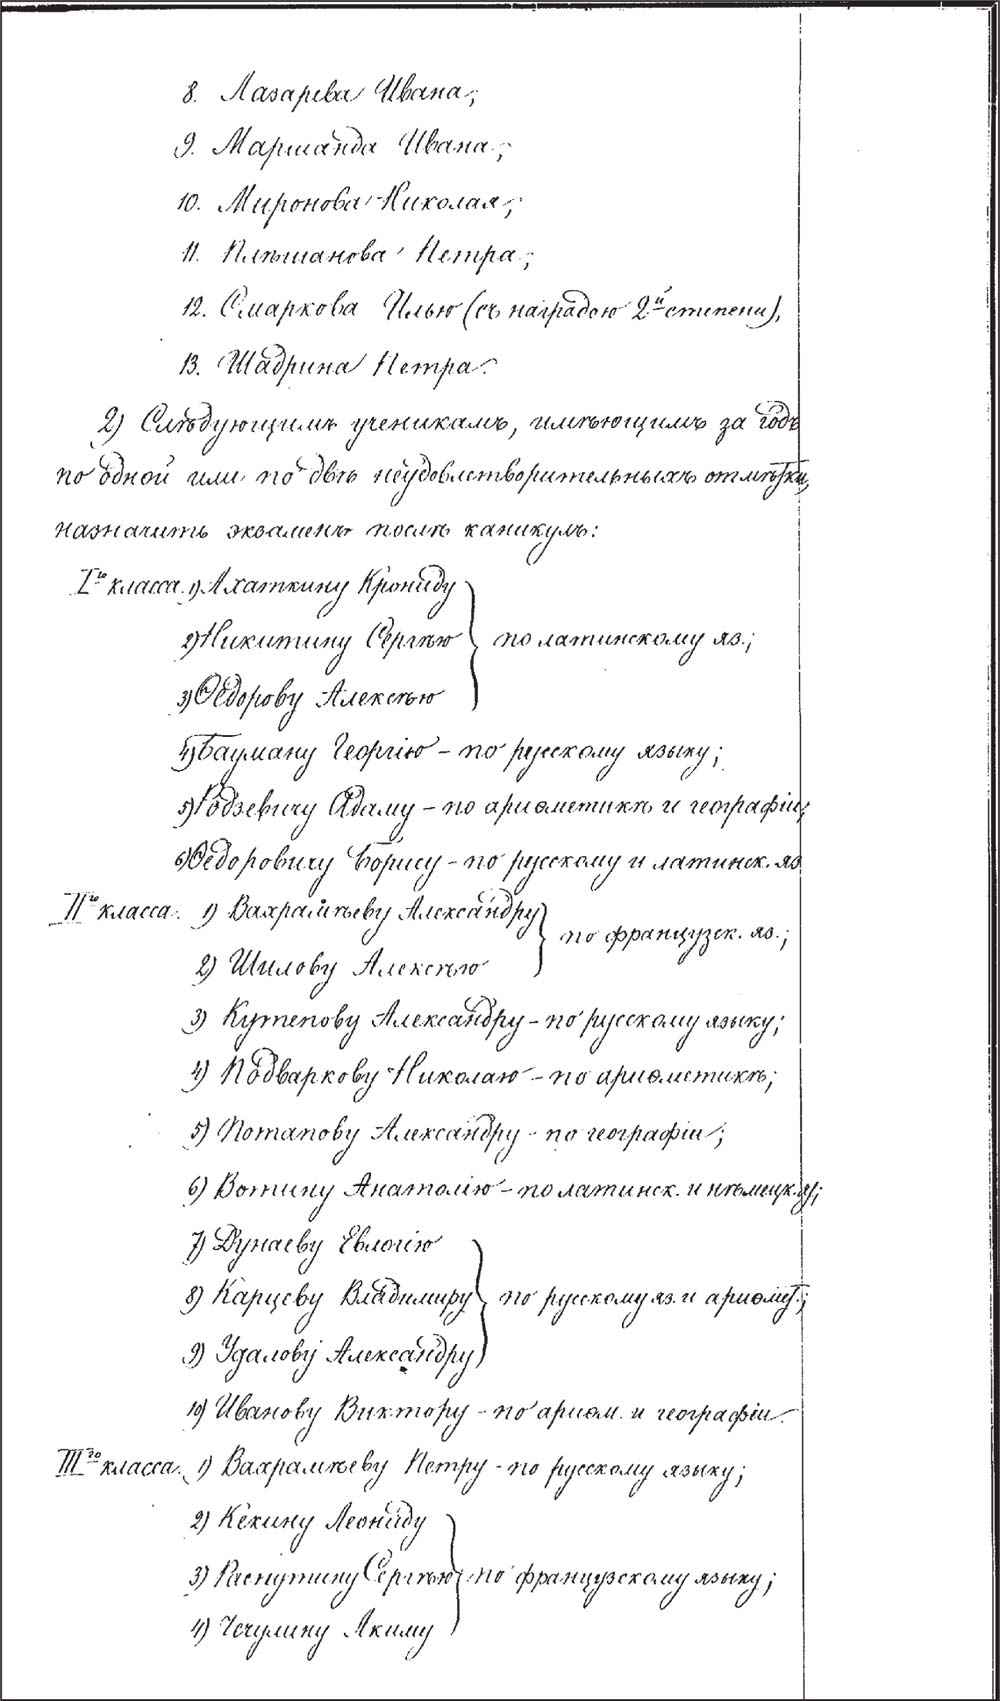 8. Лазарева Ивана;
9. Маршанда Ивана;
10. Миронова Николая;
11. Плѣшанова Петра;
12. Смаркова Илью (съ наградою 2й степени),
13. Шадрина Петра.
2) Слѣдующимъ ученикамъ, имѣющимъ за годъ
по одной или по двѣ неудовлетворительныхъ отмѣтки,
назначить экзаменъ послѣ каникулъ:
Iго класса. 1) Ахаткину Крониду
2) Никитину Сергѣю } по латинскому яз.;
3) Ѳедорову Алексѣю
4) Бауману Георгію – по русскому языку;
5) Родзевичу Адаму – по ариѳметикѣ и географіи;
6) Ѳедоровичу Борису – по русскому и латинск. яз.
IIго класса. 1) Вахрамѣеву Александру
} по французск. яз.;
2) Шилову Алексѣю
3) Кутепову Александру – по русскому языку;
4) Подваркову Николаю – по ариѳметикѣ;
5) Потапову Александру – по географіи;
6) Вотину Анатолію – по латинск. и нѣмецк. яз;
7) Дунаеву Евлогію
8) Карцеву Владимиру } по русскому яз. и ариѳмет.;
9) Удалову Александру
10) Иванову Виктору – по ариѳм. и географіи.
IIIго класса. 1) Вахрамѣеву Петру – по русскому языку;
2) Кекину Леониду
3) Распутину Сергѣю } по французскому языку;
4) Чечулину Акиму